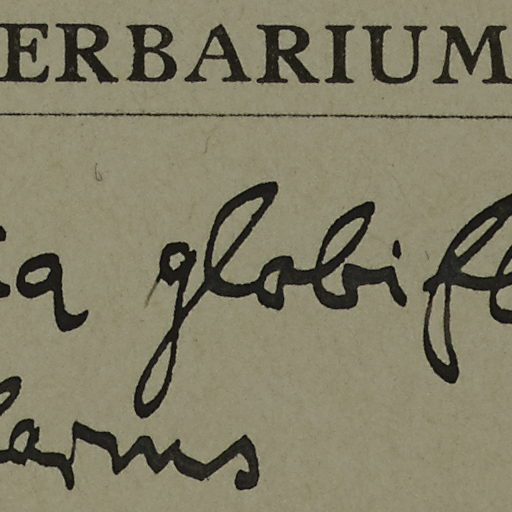 ERBARIUM
ia globifl
larms